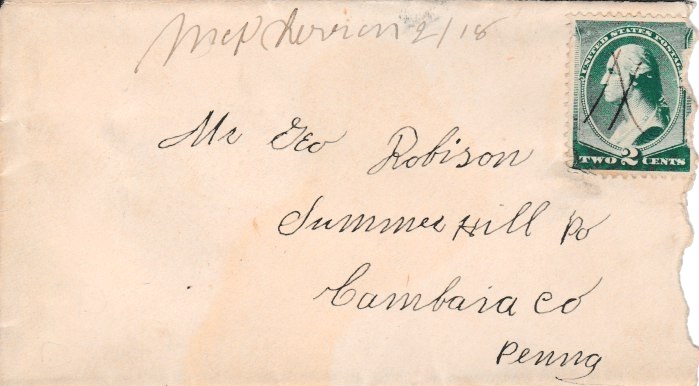 McPherrion 2/18
UNITED STATES POSTAGE
TWO 2 CENTS
Mr Geo Robison
Summer Hill Po
Cambaia Co
Penna